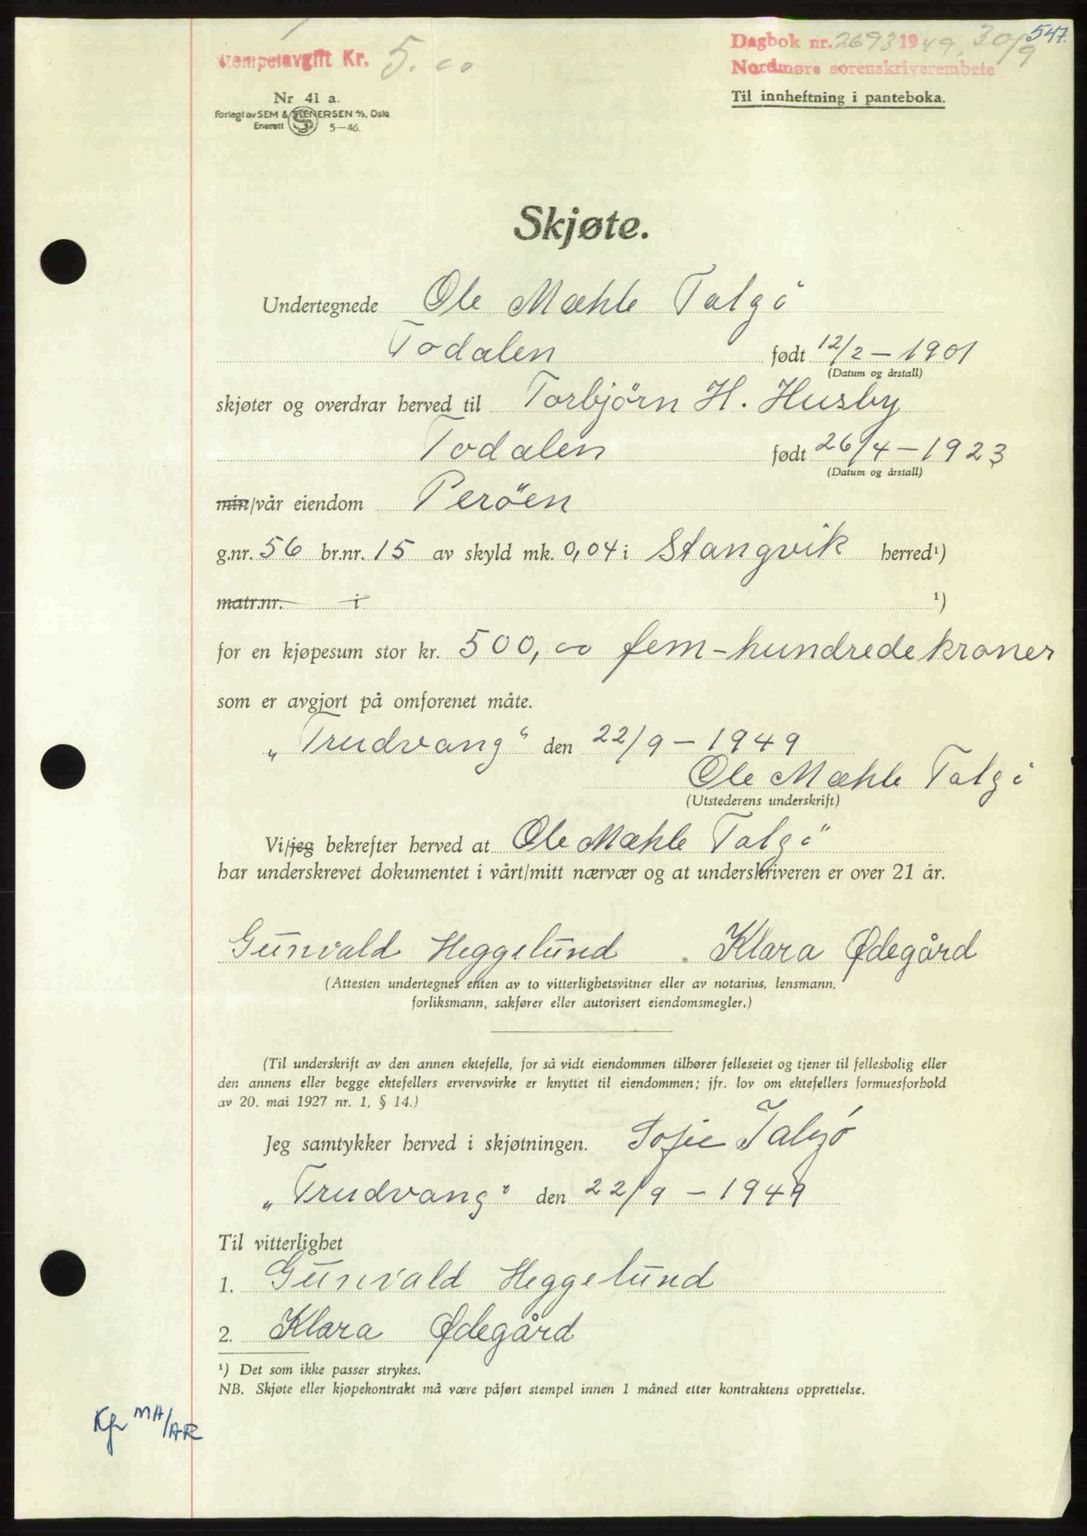 547.
Stempelavgift Kr. 5.00
Dagbok nr. 2693 1949, 30/9
Nordmøre sorenskriverembete
Til innheftning i panteboka.
Nr 41 a.
Forlagt av SEM & STENERSEN A/S, Oslo
Enerett 5-46.
Skjøte.
Undertegnede Ole Mæhle Talgö
Todalen født 12/2 - 1901
(Datum og årstall)
skjøter og overdrar herved til Torbjörn H. Husby
Todalen født 26/4 - 1923
(Datum og årstall)
min/vår eiendom Peröen
g.nr. 56 br.nr. 15 av skyld mk. 0,04 i Stangvik herred¹)
matr.nr. i ¹)
for en kjøpesum stor kr. 500,00 fem-hundrede kroner
som er avgjort på omforenet måte.
„Trudvang“ den 22/9 - 1949
Ole Mæhle Talgö
(Utstederens underskrift)
Vi/jeg bekrefter herved at Ole Mæhle Talgö
har underskrevet dokumentet i vårt/mitt nærvær og at underskriveren er over 21 år.
Gunvald Heggelund . Klara Ødegård
(Attesten undertegnes enten av to vitterlighetsvitner eller av notarius, lensmann,
forliksmann, sakfører eller autorisert eiendomsmegler.)
(Til underskrift av den annen ektefelle, for så vidt eiendommen tilhører felleseiet og tjener til fellesbolig eller
den annens eller begge ektefellers ervervsvirke er knyttet til eiendommen; jfr. lov om ektefellers formuesforhold
av 20. mai 1927 nr. 1, § 14.)
Jeg samtykker herved i skjøtningen. Sofie Talgö
„Trudvang“ den 22/9 - 1949
Til vitterlighet
1. Gunvald Heggelund
2. Klara Ødegård
¹) Det som ikke passer strykes.
NB. Skjøte eller kjøpekontrakt må være påført stempel innen 1 måned etter kontraktens opprettelse.
MA/AR